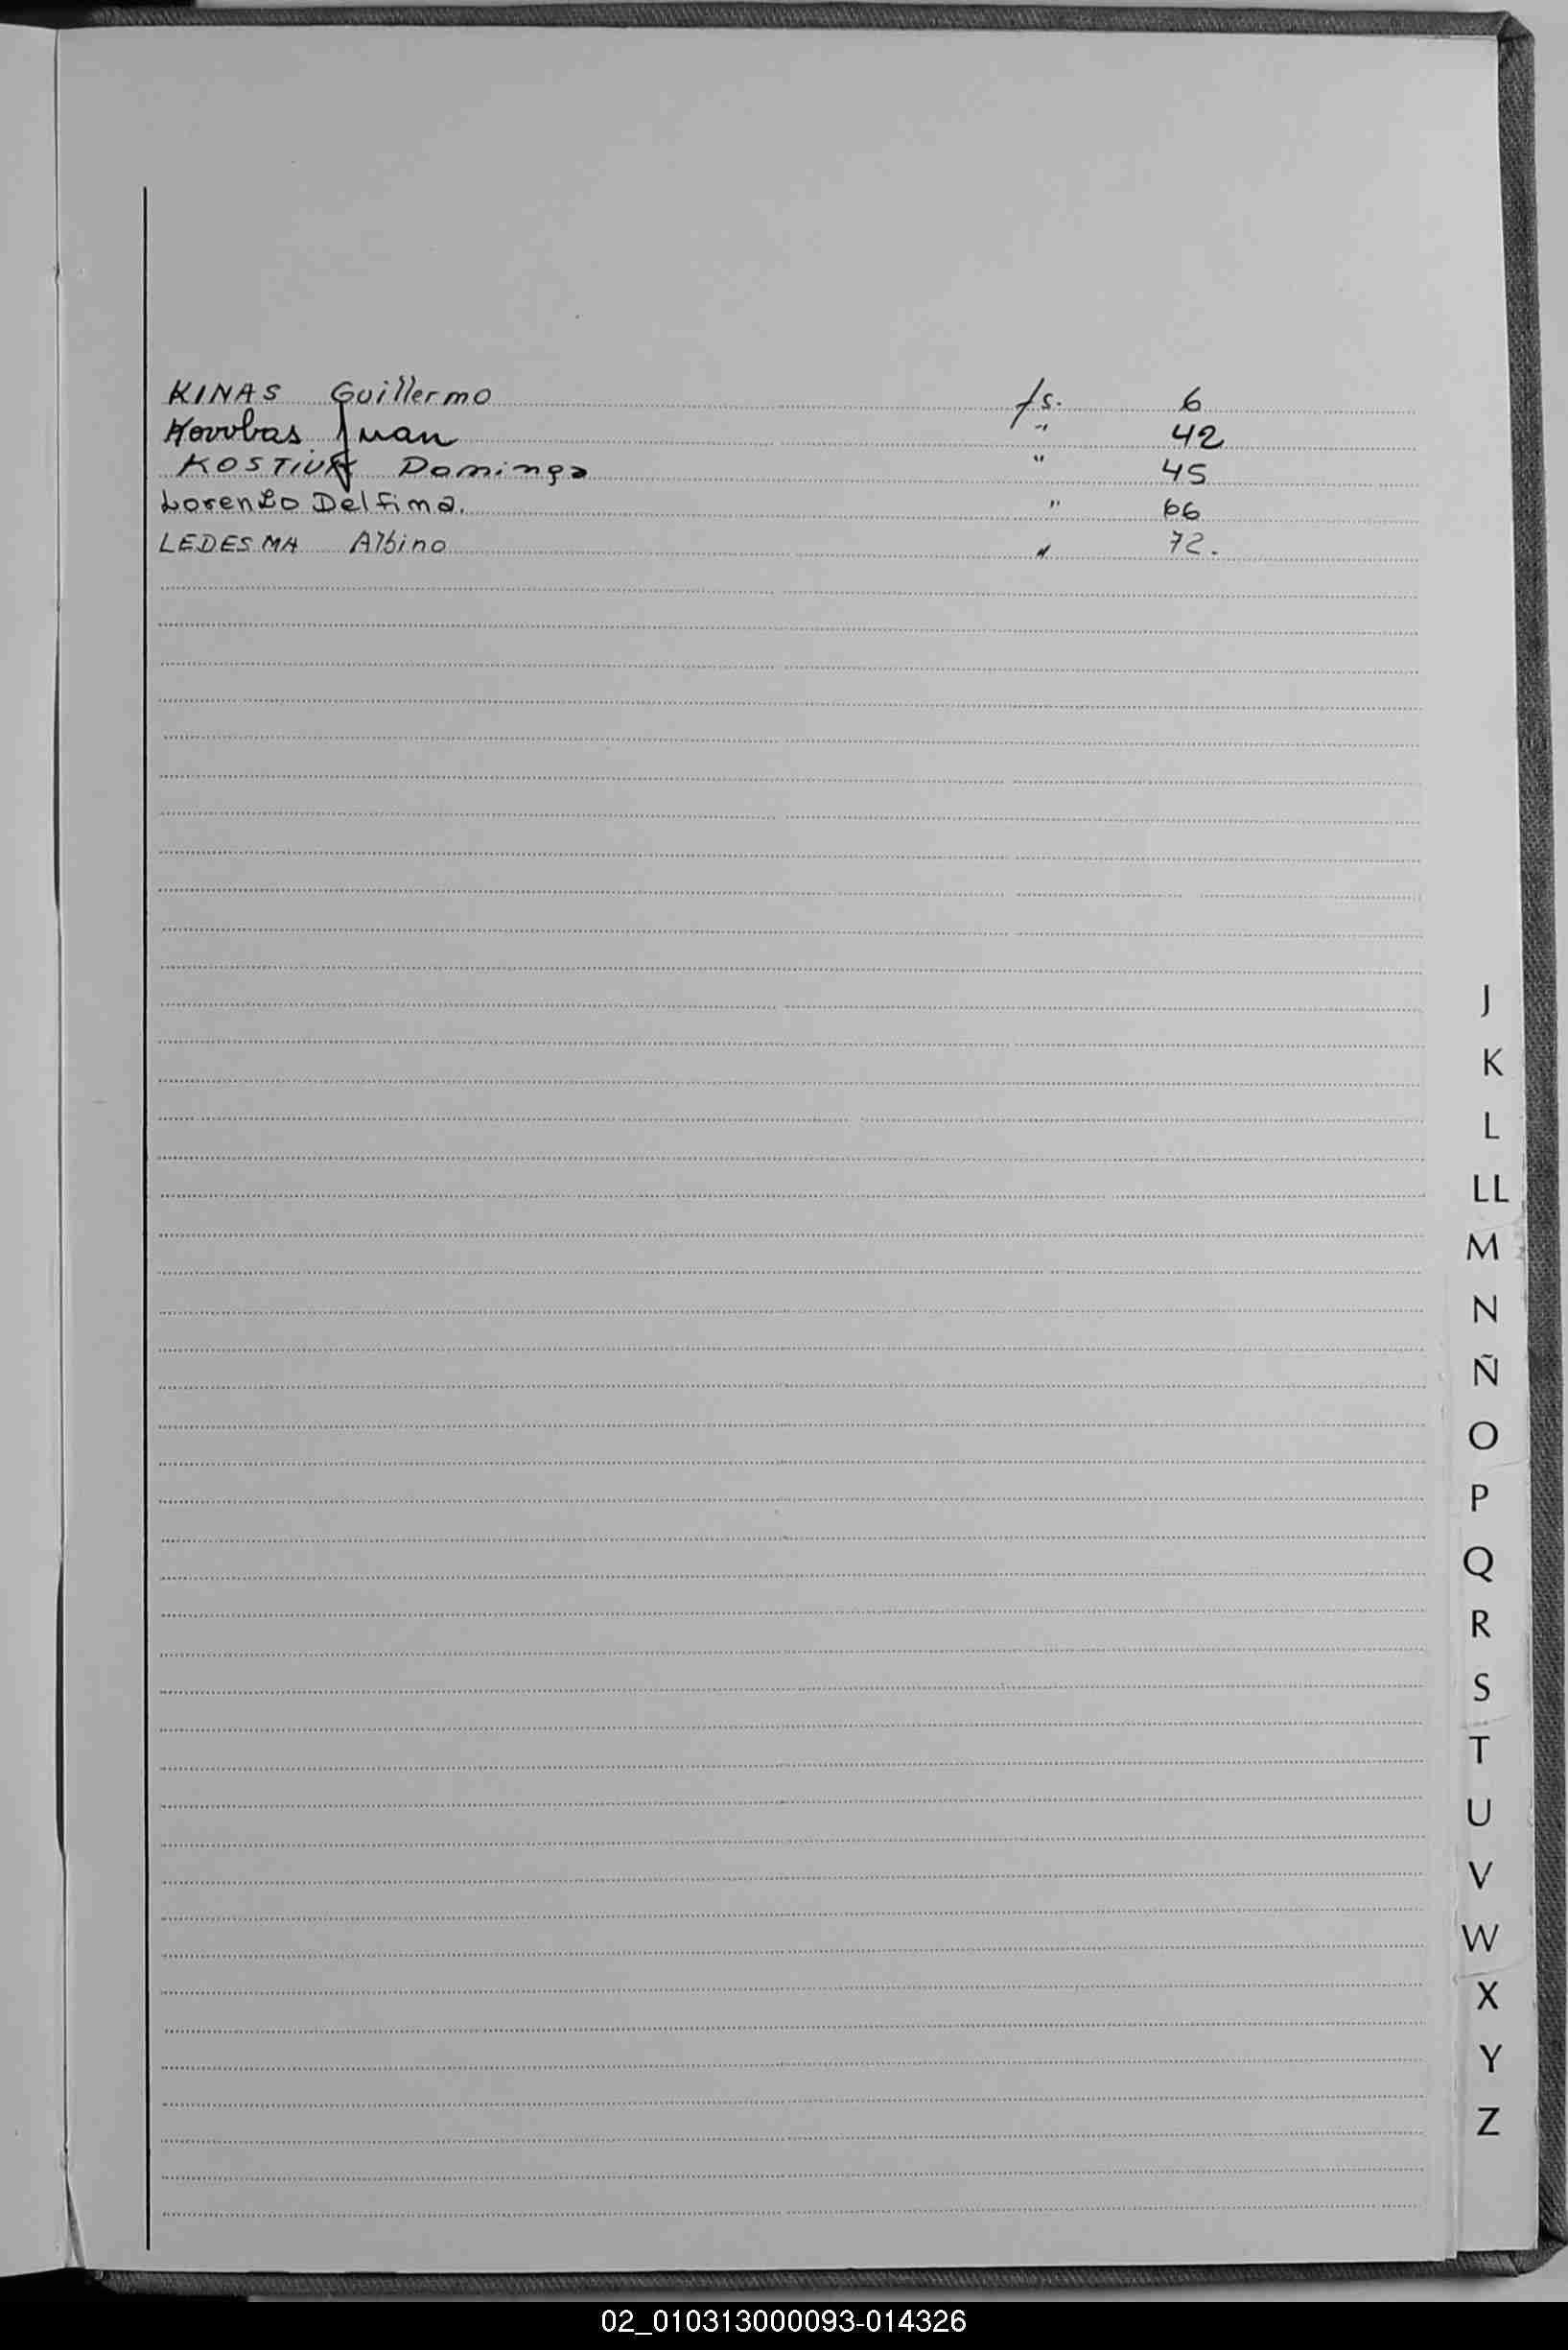 KINAS Guillermo fs. 6
Kovobas Juan " 42
KOSTIUK Dominga " 45
Lorenzo Delfima. " 66
LEDESMA Albino " 72.
J
K
L
LL
M
N
Ñ
O
P
Q
R
S
T
U
V
W
X
Y
Z
02_010313000093-014326